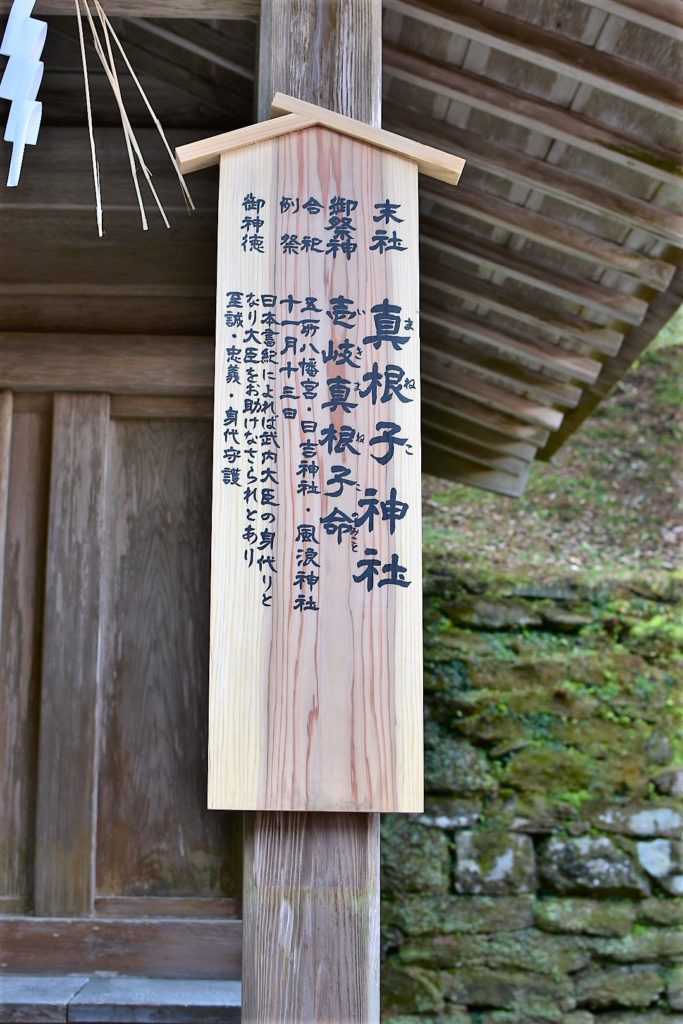 末社 真根子神社
まねこ
御祭神 壱岐真根子命
いきまねこのみこと
合祀 五所八幡宮・日吉神社・風浪神社
例祭 十一月十三日
御神徳 日本書紀によれば武内大臣の身代りと
なり大臣をお助けなさられとあり
至誠・忠義・身代守護